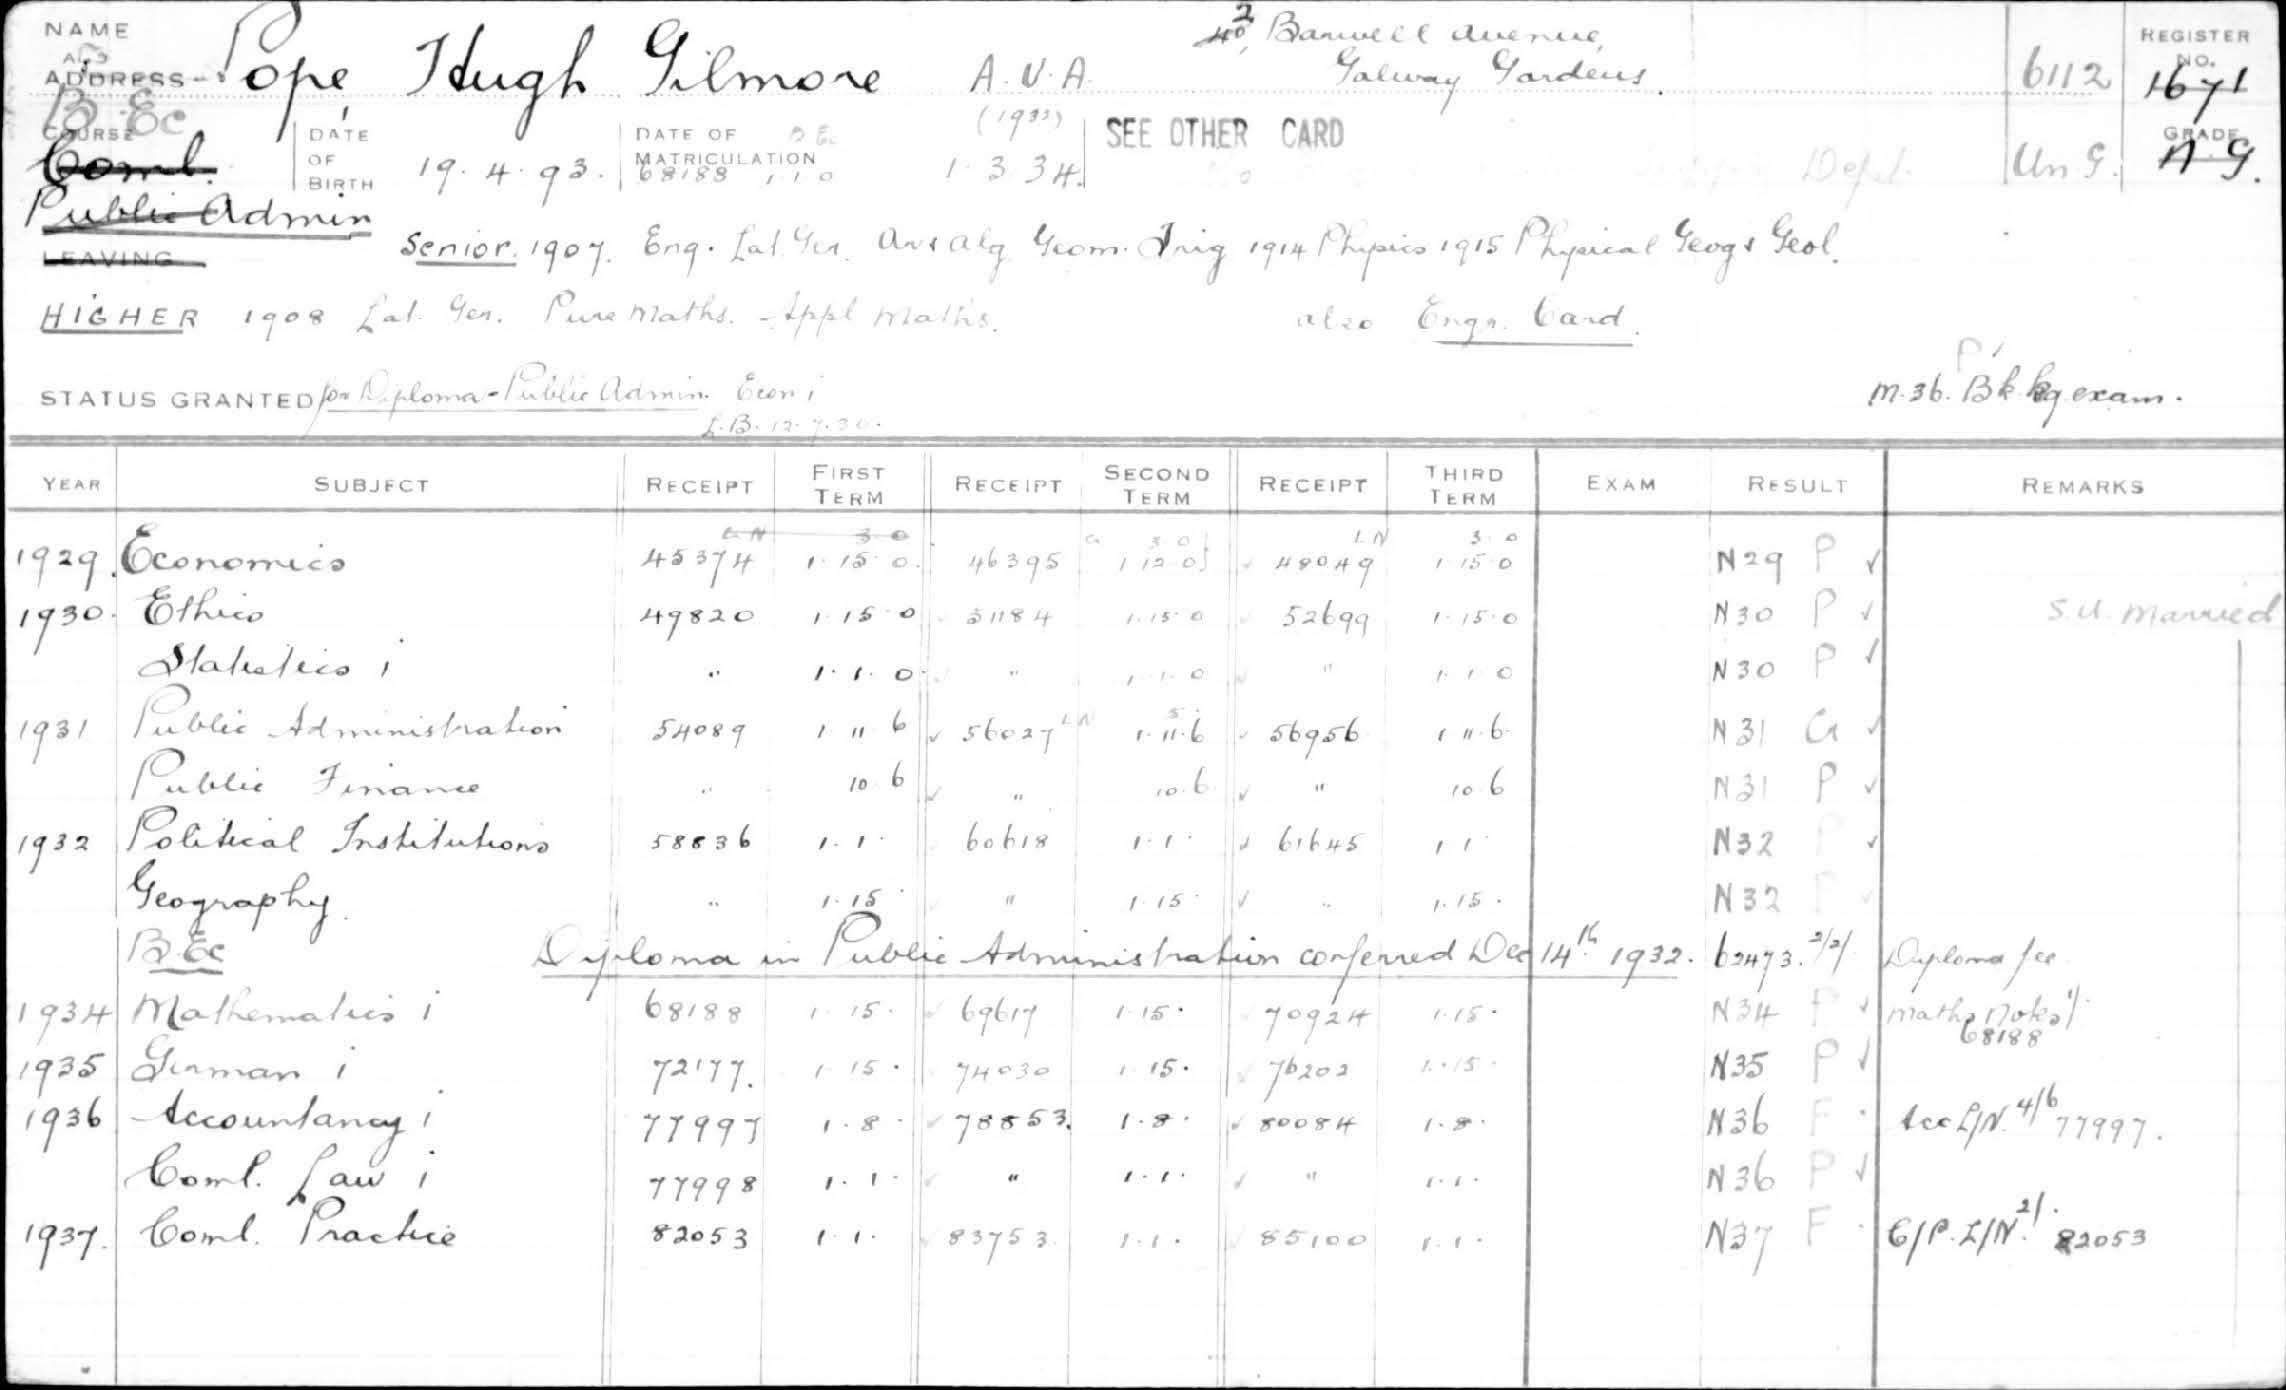 NAME AND ADDRESS Pope, Hugh Gilmore A.U.A. (1933) 40, 2 Barwell Avenue, Galway Gardens. 6112 REGISTER NO. 1671
B.Ec
COURSE Coml. DATE OF BIRTH 19.4.93. DATE OF MATRICULATION 68188 1 1 0 1.3.34. SEE OTHER CARD Dept. Un.G. GRADE N.G.
Public Admin
LEAVING Senior. 1907. Eng. Lat. Ger. Ar & Alg Geom. Trig 1914 Physics 1915 Physical Geog & Geol.
HIGHER 1908 Lat. Ger. Pure Maths. Appl Maths. also Engr. Card.
STATUS GRANTED for Diploma - Public Admin. Econ i M.36. Bk. kg exam. P
YEAR SUBJECT RECEIPT FIRST TERM RECEIPT SECOND TERM RECEIPT THIRD TERM EXAM RESULT REMARKS
3 0 3 0 LN 3 0
1929. Economics 45374 1.15.0. 46395 1 12 0 48049 1 15 0 N29 P ✓
1930. Ethics 49820 1.15.0 51184 1.15.0 52699 1.15.0 N30 P ✓ S.U. Married
Statistics i " 1.1.0 " 1.1.0 " 1.1.0 N30 P ✓
1931 Public Administration 54089 1 11 6 56027 LN 1.11.6 56956 1 11.6 N31 ✓
Public Finance " 10 6 " 10.6 " 10 6 N31 P ✓
1932 Political Institutions 58836 1.1. 60618 1.1. 61645 1 1 N32 P ✓
Geography. " 1.15 " 1.15. " 1.15. N32 P
B.Ec Diploma in Public Administration conferred Dec 14th 1932. 62473. 2/2/ Diploma fee
1934 Mathematics i 68188 1.15. 69617 1.15. 70924 1.15. N34 P ✓ Maths Notes 1/. 68188
1935 German i 72177. 1.15. 74030 1.15. 76202 1.15. N35 P ✓
1936 Accountancy i 77997 1.8. 78853. 1.8. 80084 1.8. N36 F Acc L/N. 4/6 77997.
Coml. Law i 77998 1.1. " 1.1. " 1.1. N36 P ✓
1937. Coml. Practice 82053 1.1. 83753 1.1. 85100 1.1. N37 F C/P. L/N. 2/. 82053